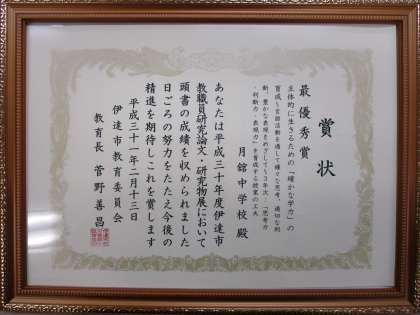 賞状
最優秀賞
主体的に生きるための「確かな学力」の
育成～言語活動を通して磨く思考、適切な判
断、豊かな表現をめざして～3年次「思考力
・判断力・表現力」を育成する授業の工夫
月舘中学校 殿
あなたは平成三十年度伊達市
教職員研究論文・研究物展において
頭書の成績を収められました
日ごろの努力をたたえ今後の
精進を期待しこれを賞します
平成三十一年二月十三日
伊達市教育委員会
教育長 菅野善昌